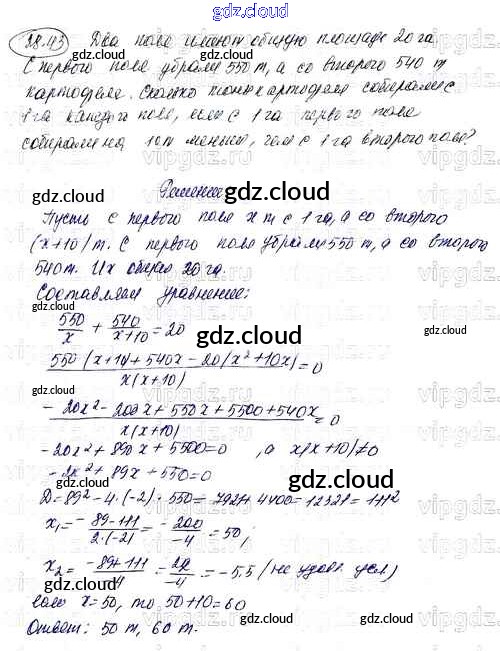 gdz.cloud
28.43 Два поля имеют общую площадь 20 га.
С первого поля убрали 550 т, а со второго 540 т
картофеля. Сколько тонн картофеля собирали с
1 га каждого поля, если с 1 га первого поля
собирали на 10 т меньше, чем с 1 га второго поля?
Решение
Пусть с первого поля x т с 1 га, а со второго
(x+10) т. С первого поля убрали 550 т, а со второго
540 т. Их общая 20 га.
Составляем уравнение:
550/x + 540/x+10 = 20
550(x+10+540x-20(x²+10x)/x(x+10) = 0
-20x²-200x+550x+5500+540x/x(x+10) = 0
-20x²+890x+5500=0, а x(x+10)≠0
-2x²+89x+550=0
D=89²-4·(-2)·550=7921+4400=12321=111²
x₁=-89-111/2·(-2)=-200/-4=50;
x₂=-89+111/-4=22/-4=-5.5 (не удовл. усл)
если x=50, то 50+10=60
Ответ: 50 т, 60 т.